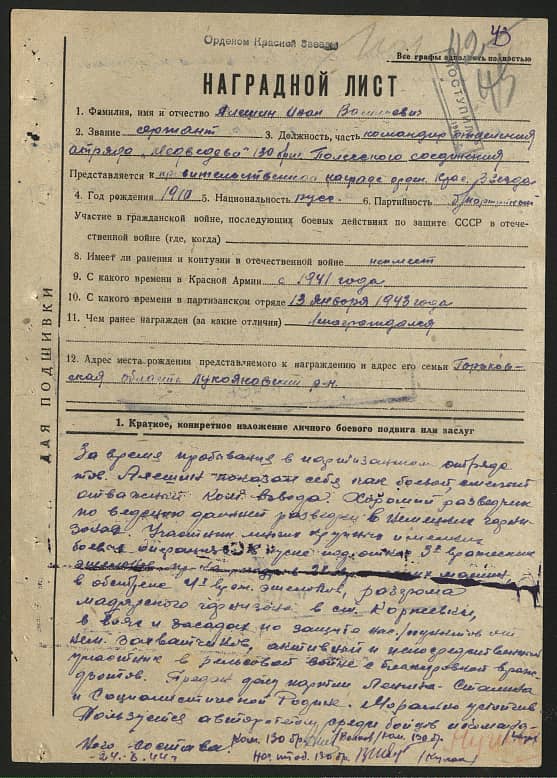 Орденом Красной Звезды
45
Все графы заполнять полностью
ПОСТУПИЛ
НАГРАДНОЙ ЛИСТ
1. Фамилия, имя и отчество Алешин Иван
2. Звание сержант 3. Должность, часть командир отделения
отряда "Медведева" 130 бриг. Полесского соединения
Представляется к правительственной награде орд. Крас. Звезда
4. Год рождения 1910 5. Национальность русс. 6. Партийность
Участие в гражданской войне, последующих боевых действиях по защите СССР в отече-
ственной войне (где, когда)
8. Имеет ли ранения и контузии в отечественной войне неимеет
9. С какого времени в Красной Армии с 1941 года
10. С какого времени в партизанском отряде 13 января 1943 года
11. Чем ранее награжден (за какие отличия)
12. Адрес места рождения представляемого к награждению и адрес его семьи Горьков-
ская область Лукояновский р-н.
ДЛЯ ПОДШИВКИ
1. Краткое, конкретное изложение личного боевого подвига или заслуг
За время пребывания в партизанском отряде
тов. Алешин показал себя как боевой
отважный ком. взвода. Хороший разведчик
по ведению разведки в немецких гарни-
зонах. Участник многих крупных и мелких
боевых операций. подрыве 3х вражеских
эшелонов
в обстреле 4х враж. эшелонов, разгрома
мадьярского гарнизона в ст.
в боях и засадах по защите населения от
нем. захватчиков, активный и непосредственный
участник в рельсовой войне
Предан делу партии Ленина-Сталина
и Социалистической Родине. Морально устойчив
Пользуется авторитетом среди бойцов и команд-
ного состава. Ком. 130 бр.
Нач. штаб. 130 бр.